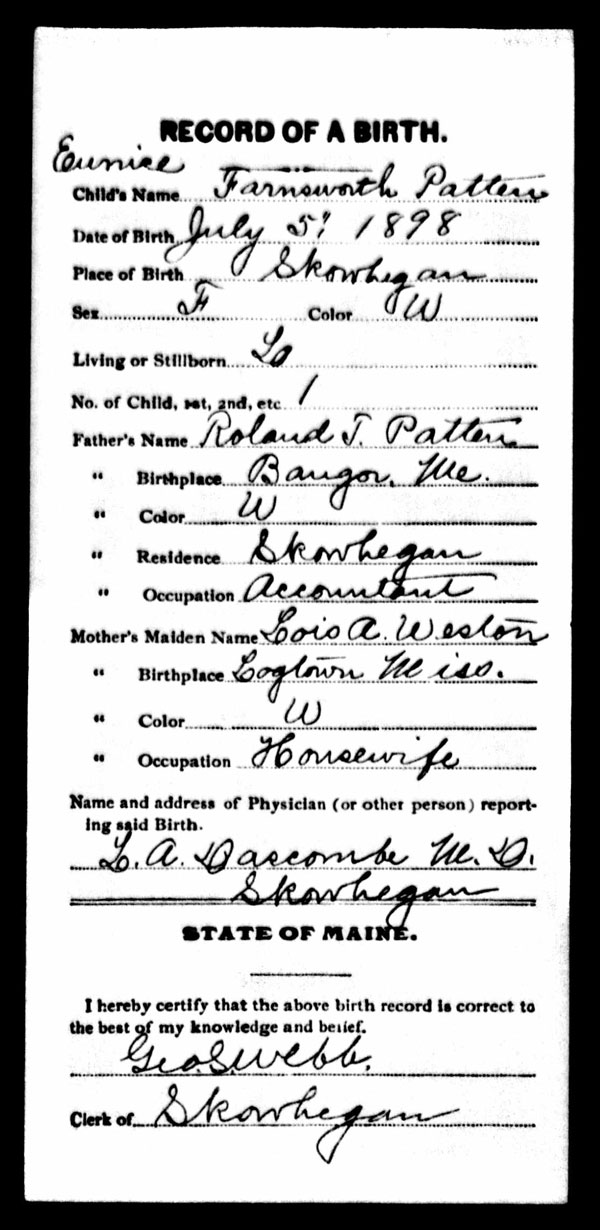 RECORD OF A BIRTH.
Eunice
Child's Name Farnsworth Patten
Date of Birth July 5, 1898
Place of Birth Skowhegan
Sex F Color W
Living or Stillborn L
No. of Child, 1st, 2nd, etc 1
Father's Name Roland T. Patten
" Birthplace Bangor, Me.
" Color W
" Residence Skowhegan
" Occupation Accountant
Mother's Maiden Name Lois A. Weston
" Birthplace Logtown Miss.
" Color W
" Occupation Housewife
Name and address of Physician (or other person) report-
ing said Birth.
L. A. Dascombe M. D.
Skowhegan
STATE OF MAINE.
I hereby certify that the above birth record is correct to
the best of my knowledge and belief.
Geo. S. Webb.
Clerk of Skowhegan